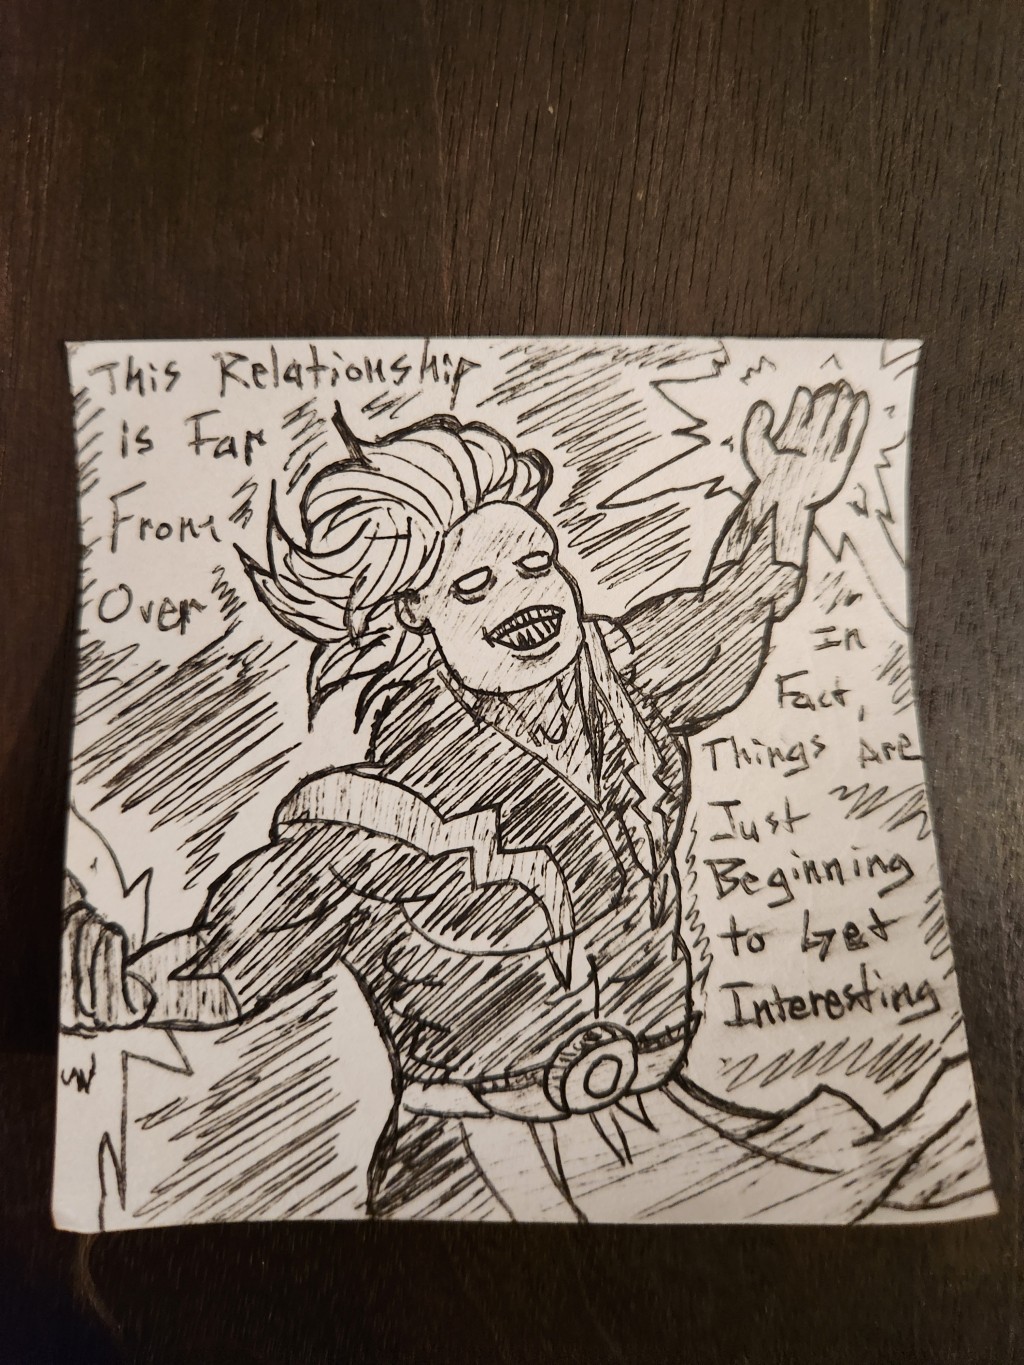 This Relationship
is Far
From
Over
In
Fact,
Things Are
Just
Beginning
to Get
Interesting